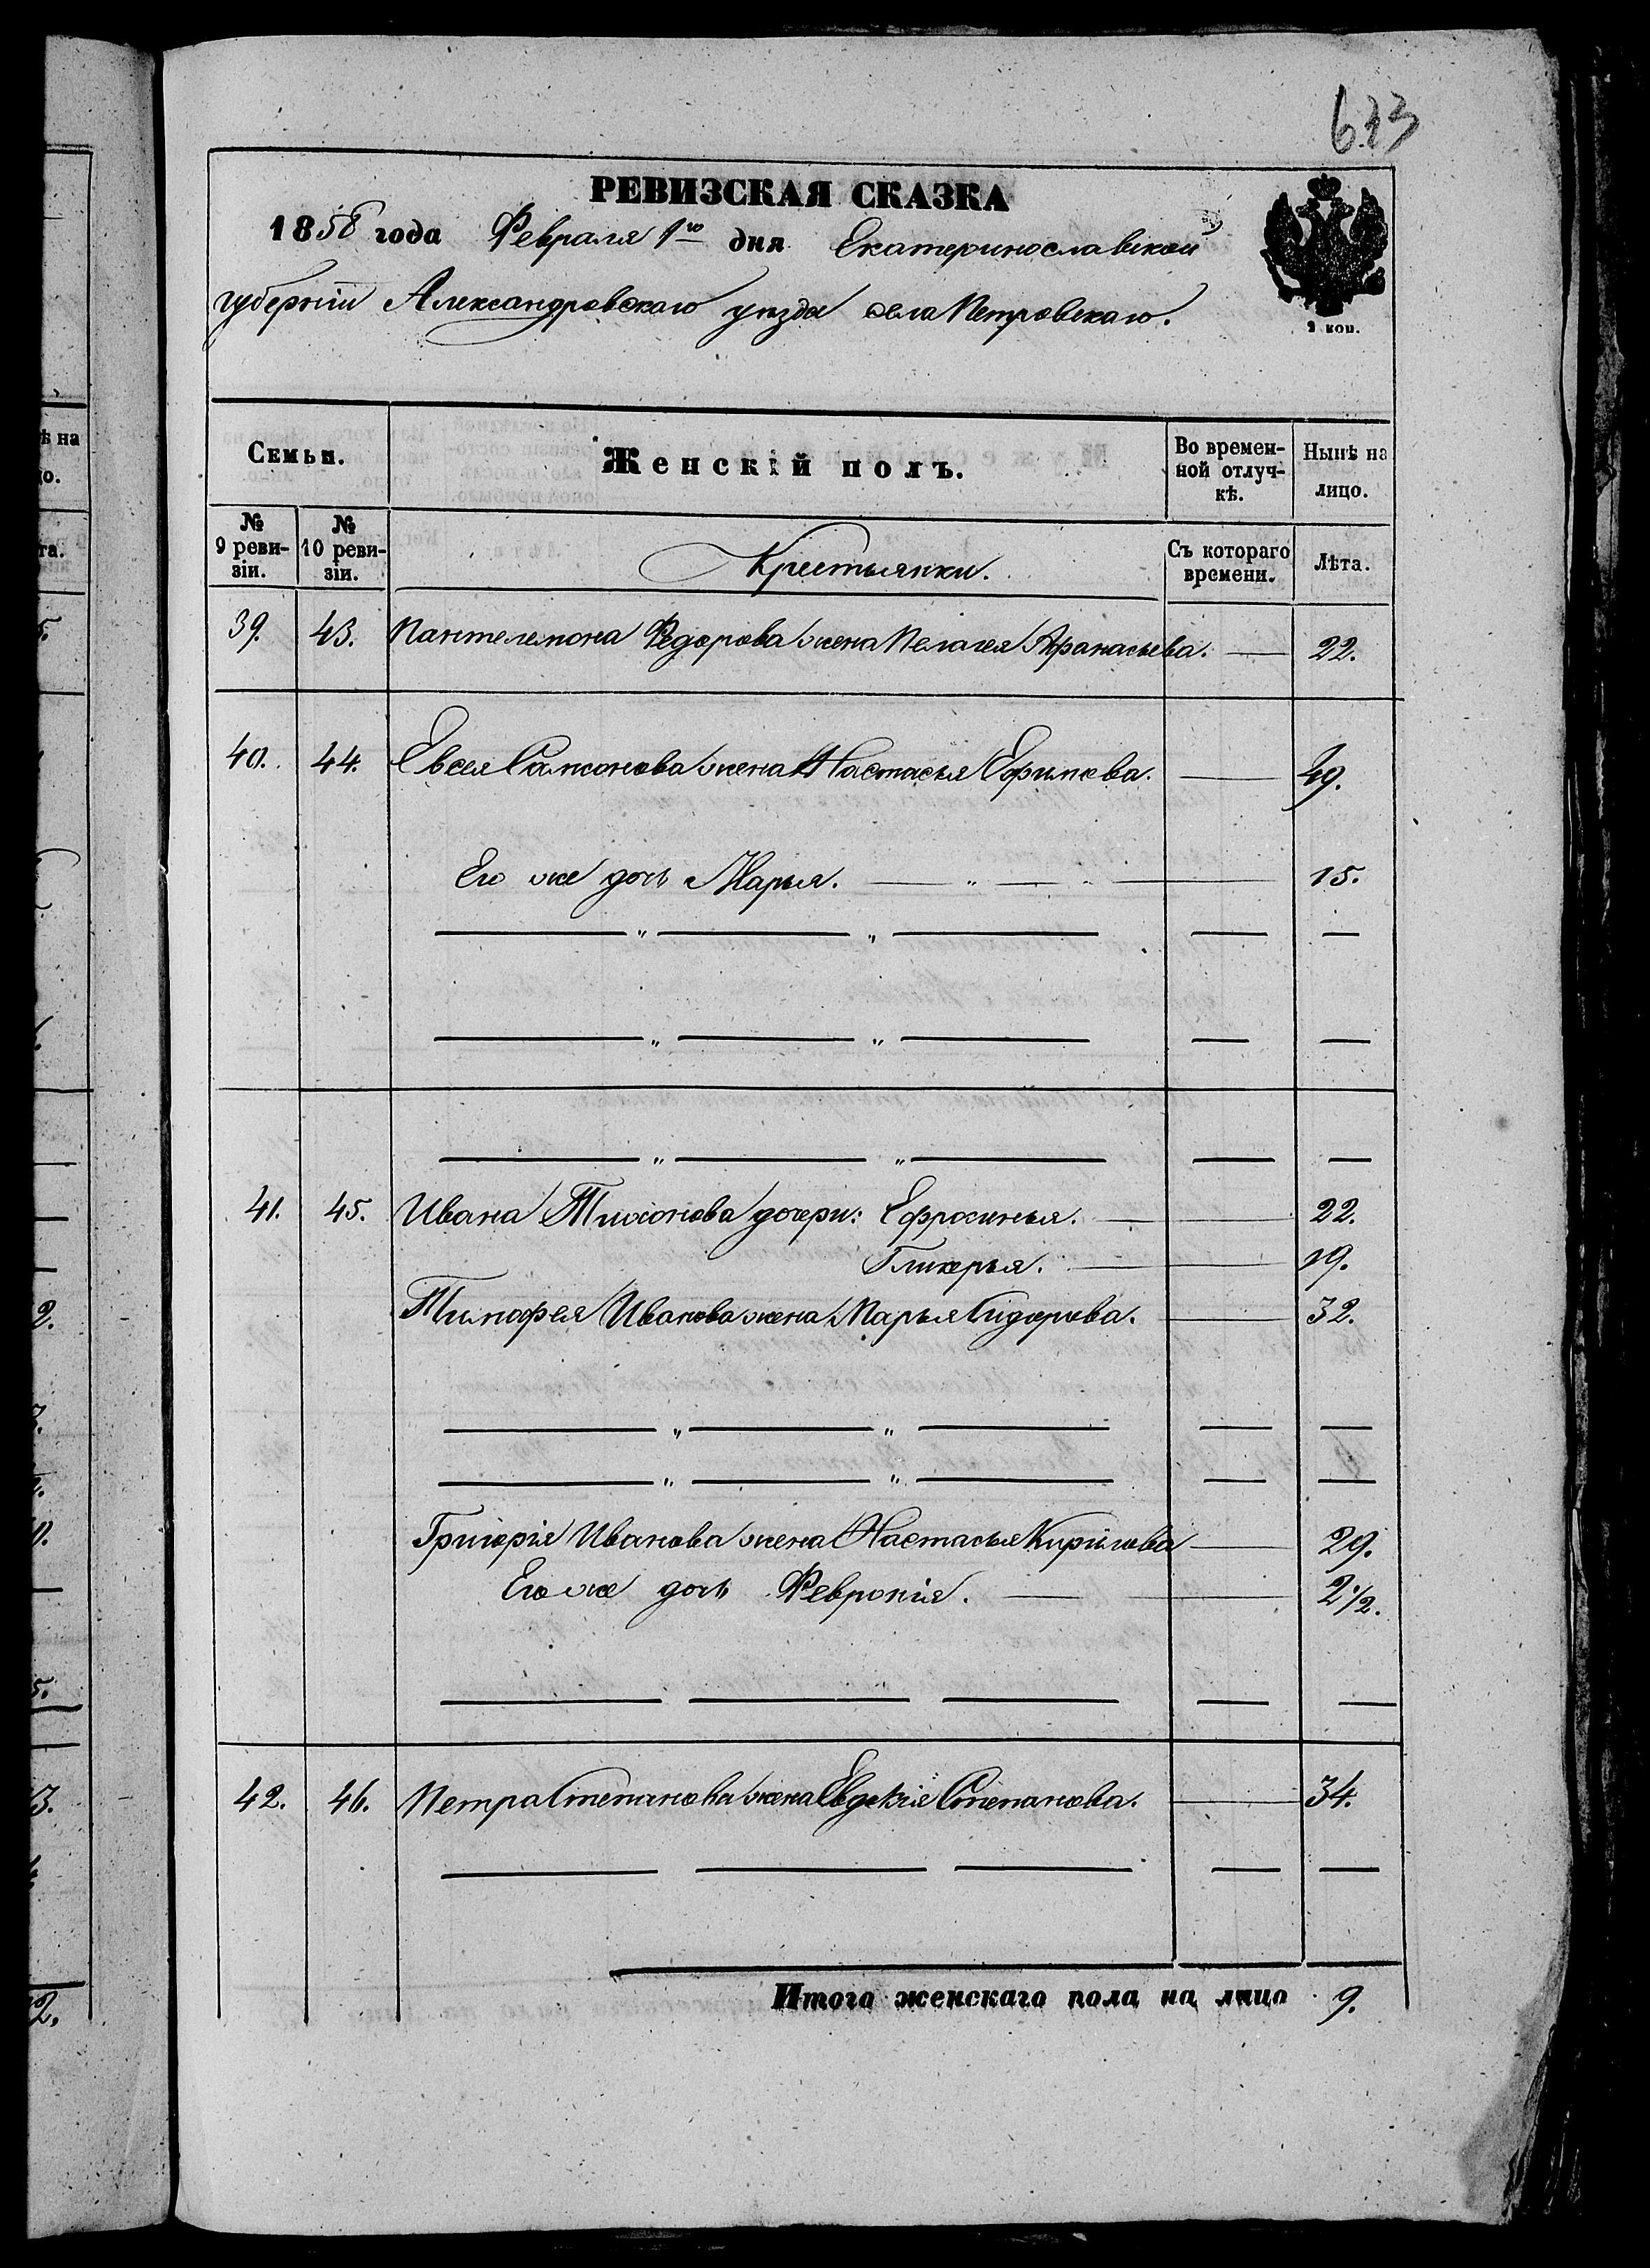 633
РЕВИЗСКАЯ СКАЗКА
1858 года Февраля 1го дня Екатеринославской
губерніи Александровскаго уезда села Петровскаго.
2 коп.
Семьи.
Женскій полъ.
Во времен-
ной отлуч-
кѣ.
Нынѣ на
лицо.
№
9 реви-
зіи.
№
10 реви-
зіи.
Крестьянки.
Съ котораго
времени.
Лѣта.
39. 43. Пантелемона Федорова жена Пелагея Афанасьева. 22.
40. 44. Евсея Самсонова жена Настасья Ефимова. 49.
Его же дочь Марья. 15.
41. 45. Ивана Тихонова дочери: Ефросинья. 22.
Гликерья. 19.
Тимофея Иванова жена Марья Сидорова. 32.
Григорія Иванова жена Настасья Кирилова 29.
Его же дочь Февронія. 2 1/2.
42. 46. Петра Степанова жена Евдокія Степанова. 34.
Итого женскаго пола на лицо 9.